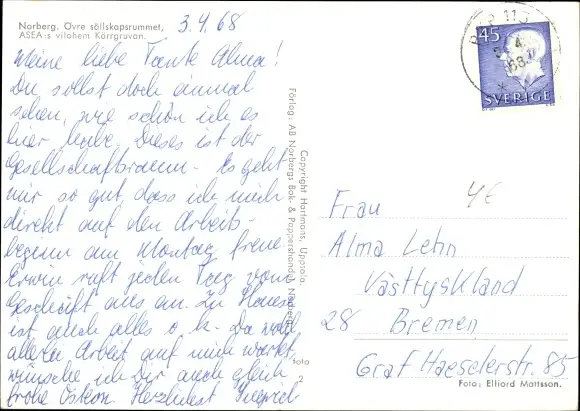 Norberg. Övre sällskapsrummet,
ASEA:s vilohem Kärrgruvan.
3.4.68
Meine liebe Tante Alma!
Du sollst doch einmal
sehen, wie schön ich es
hier habe. Dieses ist der
Gesellschaftsraum. Es geht
mir so gut, dass ich mich
direkt auf den Arbeits-
beginn am Montag freue.
Erwin ruft jeden Tag vom
Geschäft aus an. Zu Hause
ist auch alles o.k. Da wohl
allerlei Arbeit auf mich wartet,
wünsche ich Dir auch gleich
frohe Ostern. Herzlichst
Förlag: AB Norbergs Bok- & Pappershandel, Norberg
Copyright Hartmans, Uppsala.
foto
2
45
SVERIGE
PKP 113
3 4
68
4€
Frau
Alma Lehn
Västtyskland
28 Bremen
Graf Haeselerstr. 85
Foto: Elliord Mattsson.